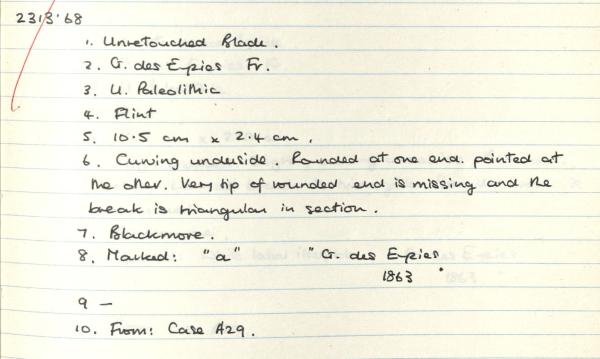 2313'68
1. Unretouched Blade.
2. G. des Eyzies Fr.
3. U. Paleolithic
4. Flint
5. 10.5 cm x 2.4 cm.
6. Curving underside. Rounded at one end. pointed at
the other. Very tip of rounded end is missing and the
break is triangular in section.
7. Blackmore.
8. Marked: "a" "G. des Eyzies
1863"
9 —
10. From: Case A29.